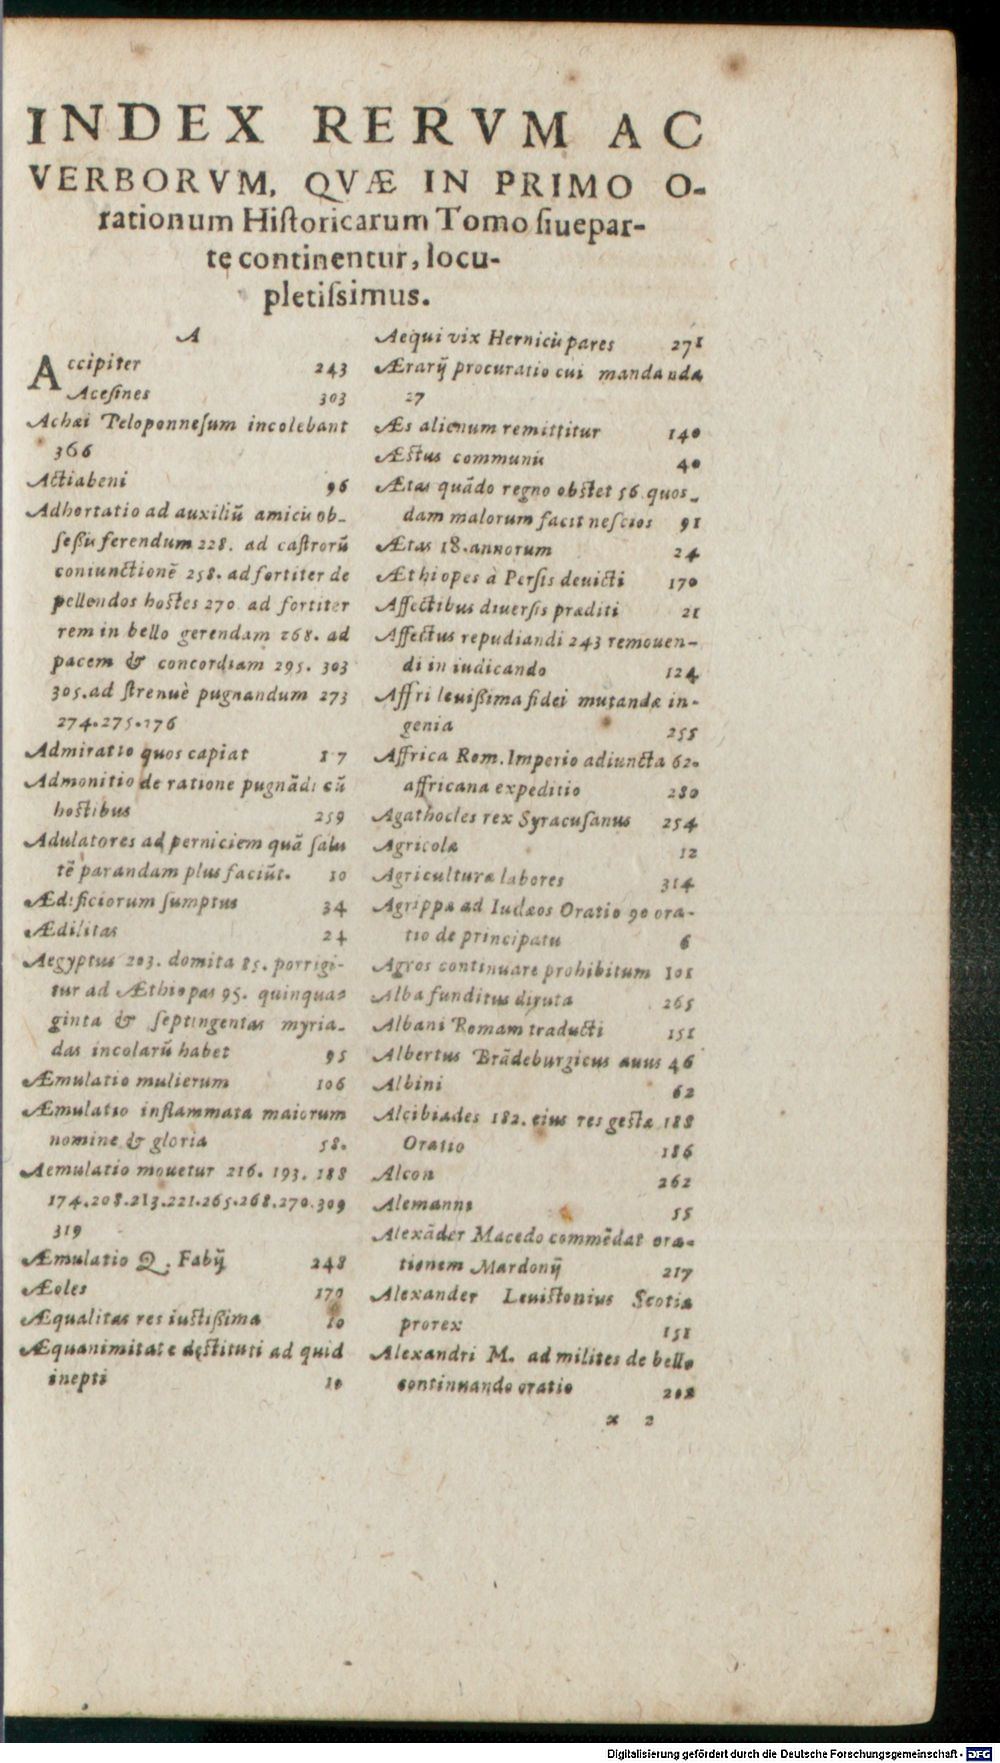 INDEX RERVM AC
VERBORVM, QVÆ IN PRIMO O-
rationum Hiſtoricarum Tomo ſiuepar-
te continentur, locu-
pletiſsimus.
A
Accipiter 243
Aceſines 303
Achæi Peloponneſum incolebant
366
Actiabeni 96
Adhortatio ad auxiliũ amicis ob-
ſeßis ferendum 228. ad caſtrorũ
coniunctionẽ 258. ad fortiter de
pellendos hostes 270. ad fortiter
rem in bello gerendam 268. ad
pacem & concordiam 295. 303
305. ad ſtrenuè pugnandum 273
274. 275. 276
Admiratio quos capiat 17
Admonitio de ratione pugnãdi cũ
hostibus 259
Adulatores ad perniciem quã ſalu
tẽ parandam plus faciũt. 10
Ædificiorum ſumptus 34
Ædilitas 24
Aegyptus 203. domita 85. porrigi-
tur ad Æthiopas 95. quinqua-
ginta & ſeptingentas myria-
das incolarũ habet 95
Æmulatio mulierum 106
Æmulatio inflammata maiorum
nomine & gloria 58.
Aemulatio mouetur 216. 193. 188
174. 208. 213. 221. 265. 268. 270. 309
319
Æmulatio Q. Fabij 248
Æoles 170
Æqualitas res iuſtißima 10
Æquanimitate deſtituti ad quid
inepti 10
Aequi vix Hernicis pares 271
Ærarij procuratio cui mandanda
27
Æs alienum remittitur 140
Æstus communis 40
Ætas quãdo regno obſtet 56. quos-
dam malorum facit neſcios 91
Ætas 18. annorum 24
Æthiopes à Perſis deuicti 170
Affectibus diuerſis præditi 21
Affectus repudiandi 243 remouen-
di in iudicando 124
Affri leuißima fidei mutandæ in-
genia 255
Affrica Rom. Imperio adiuncta 62.
affricana expeditio 280
Agathocles rex Syracuſanus 254
Agricolæ 12
Agriculturæ labores 314
Agrippæ ad Iudæos Oratio 90 ora-
tio de principatu 6
Agros continuare prohibitum 101
Alba funditus diruta 265
Albani Romam traducti 151
Albertus Brãdeburgicus auus 46
Albini 62
Alcibiades 182. eius res geſtæ 188
Oratio 186
Alcon 262
Alemanni 55
Alexãder Macedo commẽdat ora-
tionem Mardonij 217
Alexander Leuiſtonius Scotiæ
prorex 151
Alexandri M. ad milites de bello
continuando oratio 208
x 2
Digitalisierung gefördert durch die Deutsche Forschungsgemeinschaft - DFG